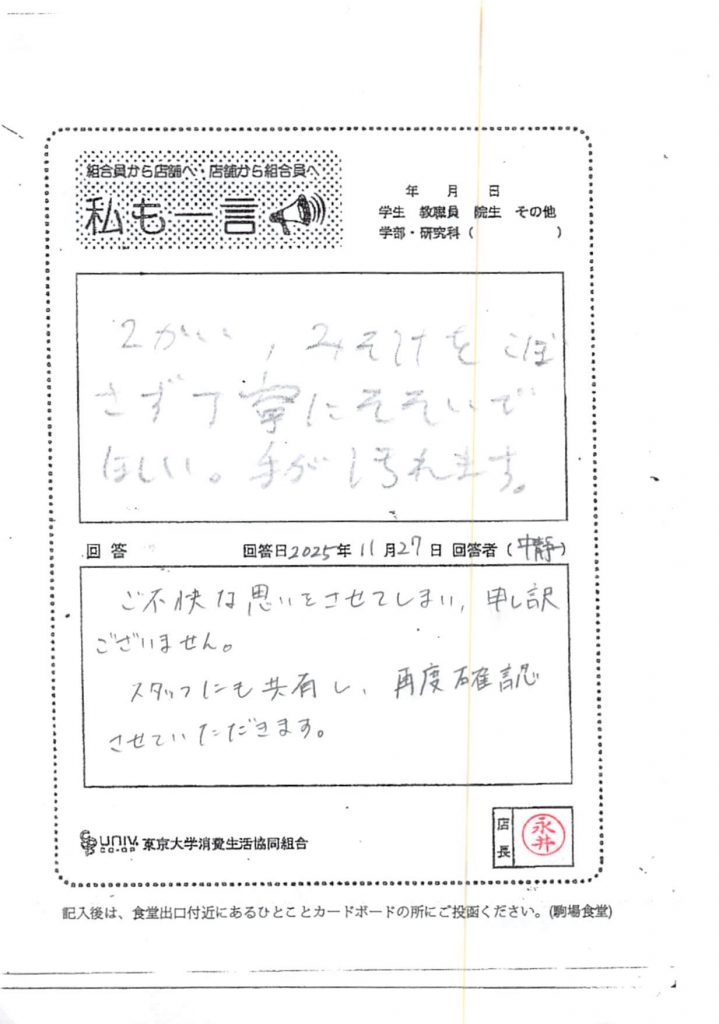 組合員から店舗へ・店舗から組合員へ
私も一言
年 月 日
学生 教職員 院生 その他
学部・研究科( )
2かい、みそ汁をこぼ
さず丁寧にそそいで
ほしい。手が汚れます。
回答 回答日2025年11月27日 回答者(中静)
ご不快な思いをさせてしまい、申し訳
ございません。
スタッフにも共有し、再度確認
させていただきます。
UNIV. CO-OP 東京大学消費生活協同組合
店長 永井
記入後は、食堂出口付近にあるひとことカードボードの所にご投函ください。(駒場食堂)